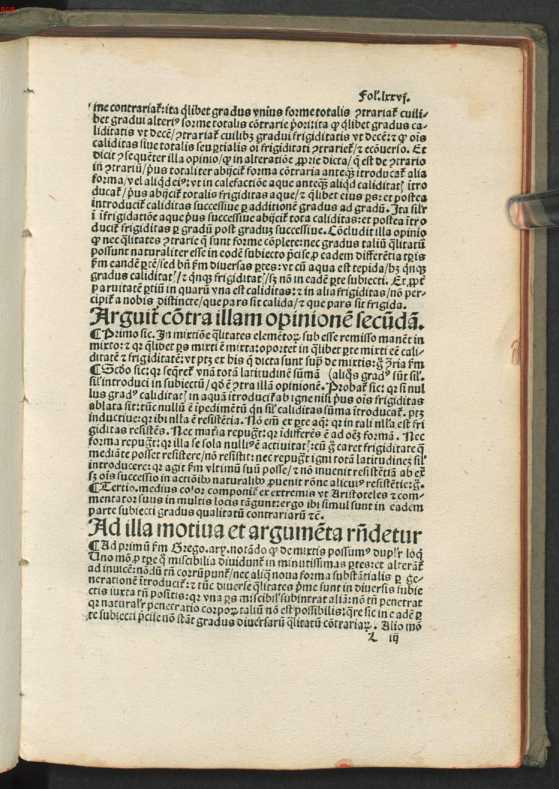 Fol. lxxvj.
ine contrariaꝶ: ita q̄libet gradus vnius forme totalis ꝯtrariaꝶ cuili-
bet gradui alteriꝰ forme totalis cōtrarie ꝑori: ita ꝙ q̄libet gradus ca-
liditatis vt decē/ ꝯtrariaꝶ cuilibꝫ gradui frigiditatis vt decē: ⁊ ꝙ oīs
caliditas siue totalis seu ꝑtialis oī frigiditati ꝯtrarieꝶ/ ⁊ ecōuerso. Et
dicit ꝯsequēter illa opinio/ ꝙ in alteratiōe ꝓprie dicta/ q̄ est de ꝯtrario
in ꝯtrariū/ pꝰ totaliter abijciꝶ forma cōtraria anteqꝫ introducaꝶ alia
forma/ vel aliqd eiꝰ: vt in calefactiōe aque anteqꝫ aliqd caliditatꝭ itro
ducaꝶ/ pꝰ abijciꝶ totalis frigiditas aque/ ⁊ q̄libet eius ꝑs: et postea
introduciꝶ caliditas successiue ꝑ additionē gradus ad gradū. Ita silr
ī ifrigidatiōe aque pꝰ successiue abijciꝶ tota caliditas: et postea itro
duciꝶ frigiditas ꝑ gradū post gradū successiue. Cōcludit illa opinio
ꝙ nec q̄litates ꝯtrarie q̄ sunt forme cōplete: nec gradus taliū q̄litatū
possunt naturaliter esse in codē subiecto p̄cise ꝓ eadem differētia tꝑis
fm eandē ꝑtē/ sed bn̄ fm diuersas ꝑtes: vt cū aqua est tepida/ hꝫ qnqꝫ
gradus caliditatꝭ/ ⁊ qnqꝫ frigiditatꝭ/ sꝫ nō in eadē ꝑte subiecti. Et ꝓpt̄
paruitatē ꝑtiū in quarū vna est caliditas: ⁊ in alia frigiditas/ nō per-
cipiꝶ a nobis distincte/ que pars sit calida/ ⁊ que pars sit frigida.
Arguit cōtra illam opinionē secūdā.
¶ Primo sic. In mixtiōe q̄litates elemētoꝝ sub esse remisso manēt in
mixto: ⁊ qꝛ q̄libet ꝑs mixti ē mixta: oportet in q̄libet ꝑte mixti eē cali-
ditatē ⁊ frigiditatē: vt ptꝫ ex his q̄ dicta sunt supra de mixtis: g̊ ꝯria fm
¶ Scd̄o sic: qꝛ seqreꝶ vnā totā latitudinē sūmā (aliqs gradꝰ sūt sil.
sil introduci in subiectū/ qd̄ ē ꝯtra illā opinionē. Probaꝶ sic: qꝛ si nul
lus gradꝰ caliditatꝭ in aquā itroduciꝶ ab igne nisi pꝰ oīs frigiditas
ablata sit: tūc nullū ē ipedimētū qn̄ sil caliditas sūma itroducaꝶ. ptꝫ
inductiue: qꝛ ibi nlla ē resistētia. Nō em̄ ex ꝑte aq̄: qꝛ in tali nlla est fri
giditas resistēs. Nec mat̄ia repuḡt: qꝛ idifferēs ē ad oēs formā. Nec
forma repuḡt: qꝛ illa se sola nulliꝰ ē actiuitatꝭ: cū g̊ caret frigiditate q̄
mediāte posset resistere/ nō resistit: nec repuḡt igni totā latitudinez sil
introducere: qꝛ agit fm vltimū suū posse/ ⁊ nō inuenit resistētiā ab exͣ
sꝫ oīs successio in actiōibꝰ naturalibꝰ ꝓuenit rōne alicuiꝰ resistētie: g̊.
¶ Tertio. medius color componiꝶ ex extremis vt Aristoteles ⁊ com-
mentator suus in multis locis tāgunt: ergo ibi simul sunt in eadem
parte subiecti gradus qualitatū contrariarū ⁊c̄.
Ad illa motiua et argumēta rn̄detur
¶ Ad primū fm Grego. ary. notādo ꝙ de mixtis possumꝰ duplr loq̄
Uno mō ꝓ tꝑe q̄ miscibilia diuidunꝶ in minutissimas ꝑtes: et alteranꝶ
ad inuicē: nōdū tn̄ corrūpunꝶ/ nec aliq̄ noua forma substātialis ꝑ ge-
nerationē itroduciꝶ: ⁊ tūc diuerse q̄litates pīme sunt in diuersis subie
ctis iuxta tn̄ positis: qꝛ vna ꝑs miscibilꝭ subintrat aliā: nō tn̄ penetrat
qꝛ naturalr penetratio corpoꝝ taliū nō est possibilis: q̄re sic in eadē ꝑ
te subiecti p̄cise nō stāt gradus diuersarū q̄litatū cōtrariaꝝ. Alio mō
L iij